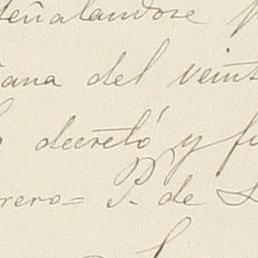 señalandose
ñana del veint
decretó y fi
rero= P. de L